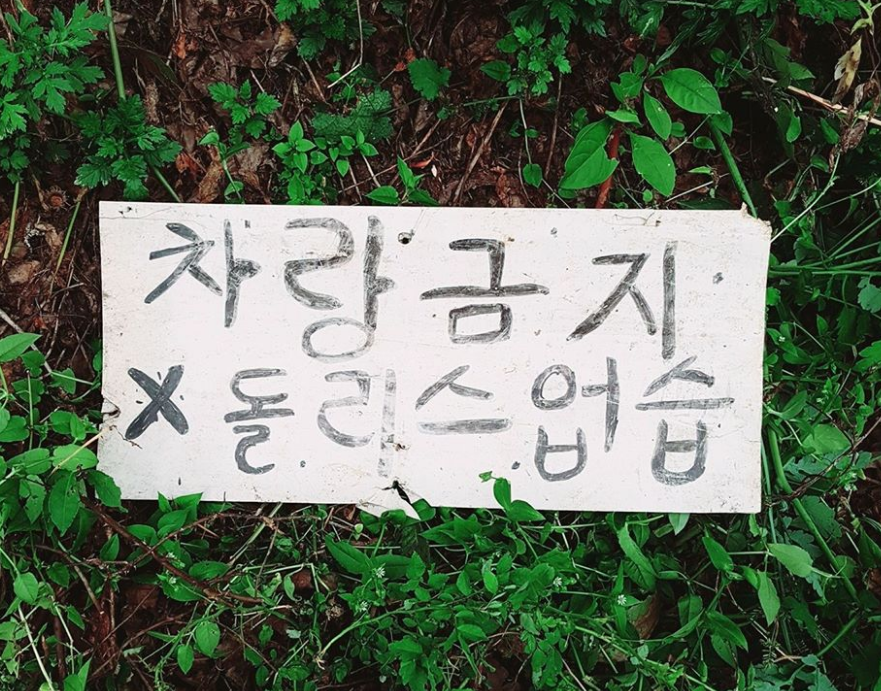 차랑금지
X 돌리스업습